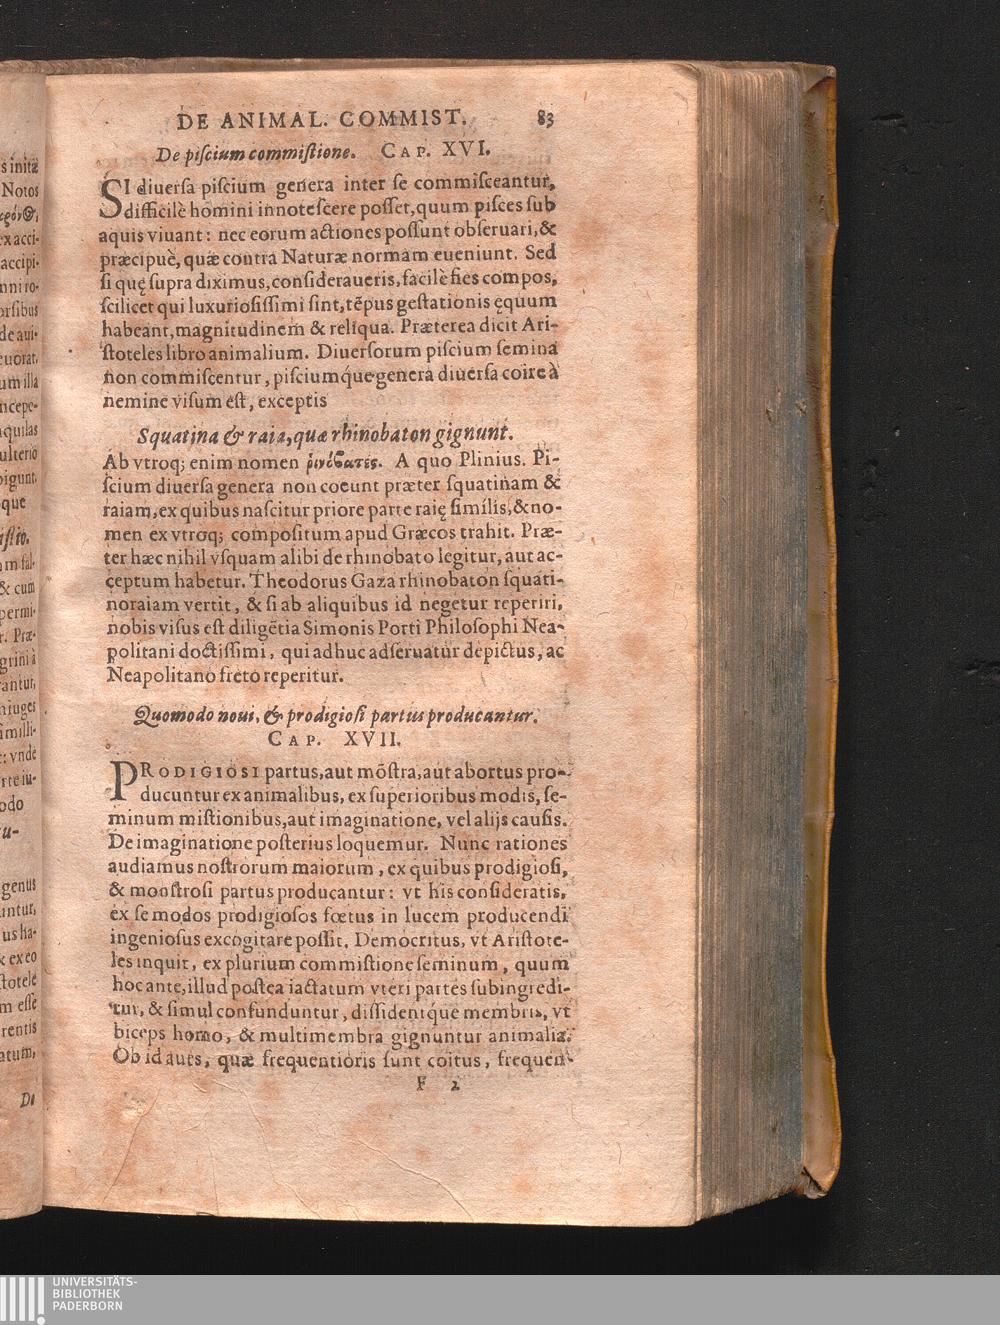 DE ANIMAL. COMMIST. 83
De piſcium commiſtione. CAP. XVI.
SI diuerſa piſcium genera inter ſe commiſceantur,
difficilè homini innoteſcere poſſet, quum piſces ſub
aquis viuant: nec eorum actiones poſſunt obſeruari, &
præcipuè, quæ contra Naturæ normam eueniunt. Sed
ſi quę ſupra diximus, conſideraueris, facilè fies compos,
ſcilicet qui luxurioſiſſimi ſint, tẽpus geſtationis ęquum
habeant, magnitudinem & reliqua. Præterea dicit Ari-
ſtoteles libro animalium. Diuerſorum piſcium ſemina
non commiſcentur, piſciumq́ue genera diuerſa coire à
nemine viſum eſt, exceptis
Squatina & raia, quæ rhinobaton gignunt.
Ab vtroq; enim nomen ῥινόβατες. A quo Plinius. Pi-
ſcium diuerſa genera non coeunt præter ſquatinam &
raiam, ex quibus naſcitur priore parte raię ſimilis, & no-
men ex vtroq; compoſitum apud Græcos trahit. Præ-
ter hæc nihil vſquam alibi de rhinobato legitur, aut ac-
ceptum habetur. Theodorus Gaza rhinobaton ſquati-
noraiam vertit, & ſi ab aliquibus id negetur reperiri,
nobis viſus eſt diligẽtia Simonis Porti Philoſophi Nea-
politani doctiſſimi, qui adhuc adſeruatur depictus, ac
Neapolitano freto reperitur.
Quomodo noui, & prodigioſi partus producantur.
CAP. XVII.
PRODIGIOSI partus, aut mõſtra, aut abortus pro-
ducuntur ex animalibus, ex ſuperioribus modis, ſe-
minum miſtionibus, aut imaginatione, vel alijs cauſis.
De imaginatione poſterius loquemur. Nunc rationes
audiamus noſtrorum maiorum, ex quibus prodigioſi,
& monſtroſi partus producantur: vt his conſideratis,
ex ſe modos prodigioſos fœtus in lucem producendi
ingenioſus excogitare poſſit. Democritus, vt Ariſtote-
les inquit, ex plurium commiſtione ſeminum, quum
hoc ante, illud poſtea iactatum vteri partes ſubingredi-
tur, & ſimul confunduntur, diſſidentq́ue membris, vt
biceps homo, & multimembra gignuntur animalia.
Ob id aues, quæ frequentioris ſunt coitus, frequen-
F 2
UNIVERSITÄTS-
BIBLIOTHEK
PADERBORN